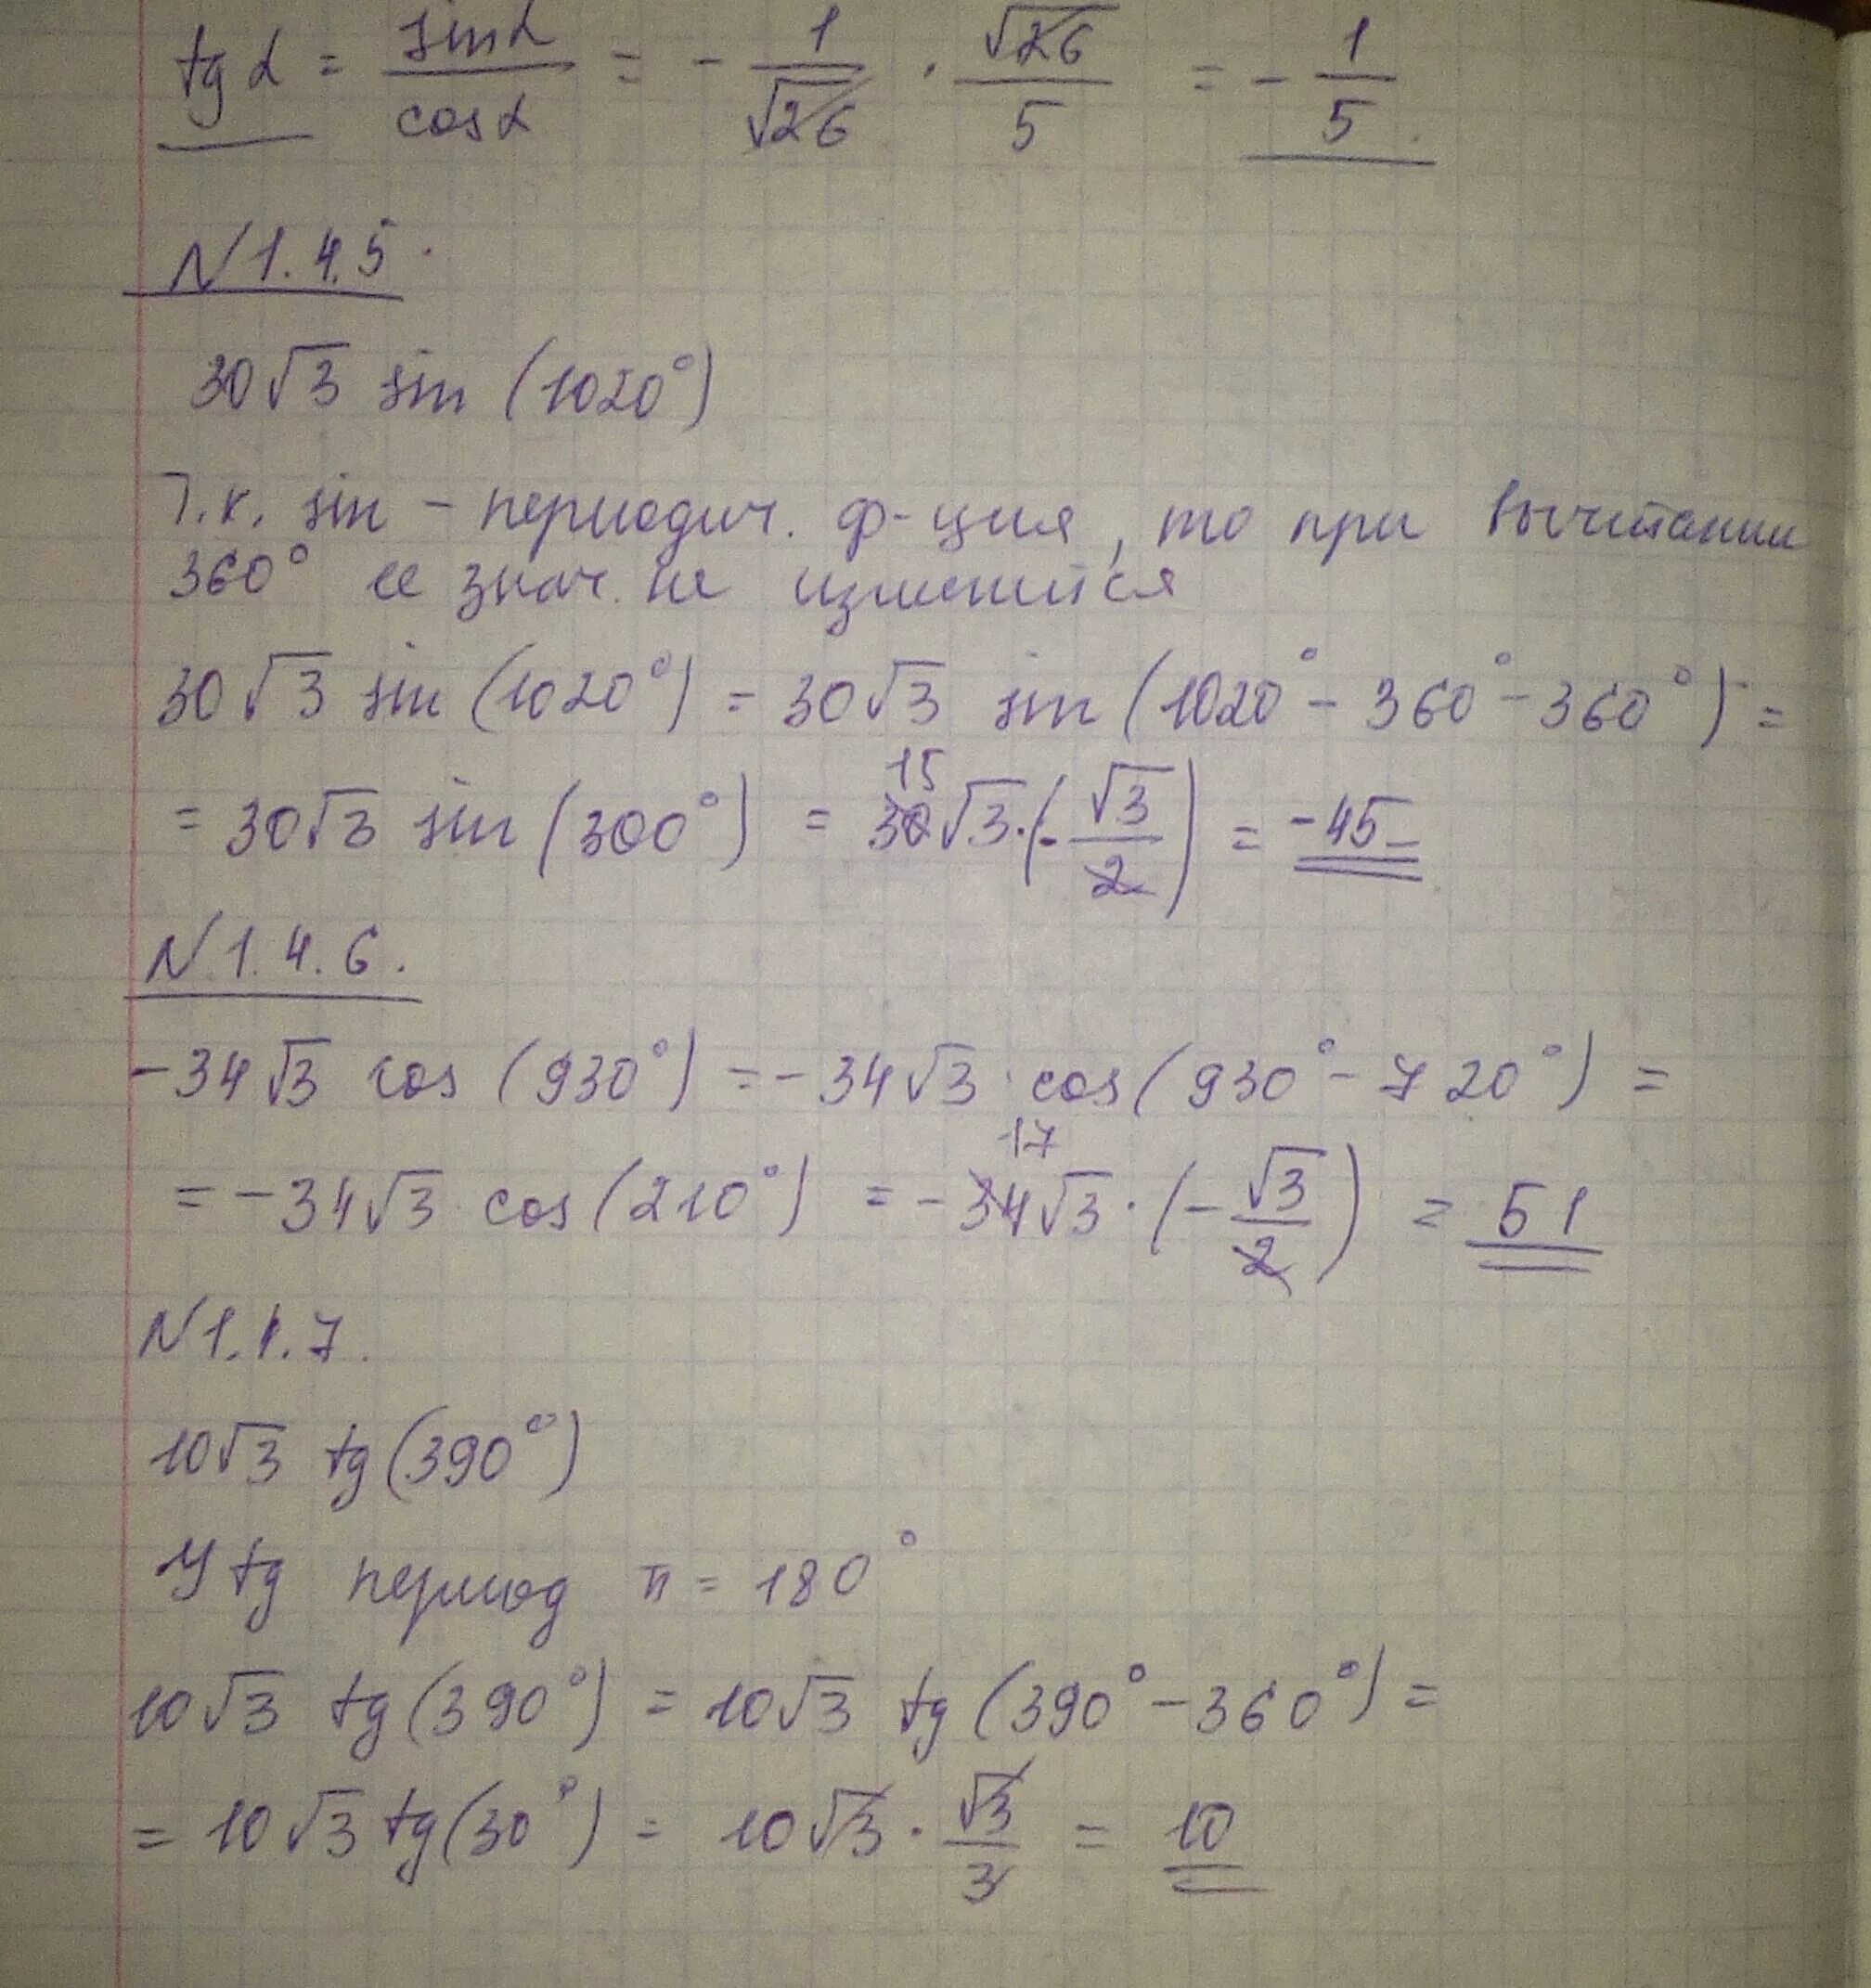 tg α = sin α / cos α = - 1/√26 · √26/5 = - 1/5.
N 1.4.5.
30√3 sin (1020°)
Т.к. sin - периодич. ф-ция, то при вычитании
360° ее знач. не изменится
30√3 sin (1020°) = 30√3 sin (1020° - 360° - 360°) =
= 30√3 sin (300°) = 30√3 · (- √3/2) = -45
15
N 1.4.6.
-34√3 cos (930°) = -34√3 · cos (930° - 720°) =
= -34√3 cos (210°) = -34√3 · (- √3/2) = 51
17
N 1.4.7.
10√3 tg (390°)
У tg период π = 180°
10√3 tg (390°) = 10√3 tg (390° - 360°) =
= 10√3 tg (30°) = 10√3 · √3/3 = 10